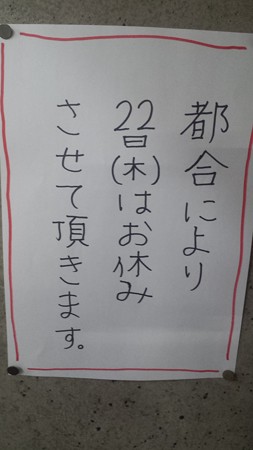 都合により
22日(木)はお休み
させて頂きます。